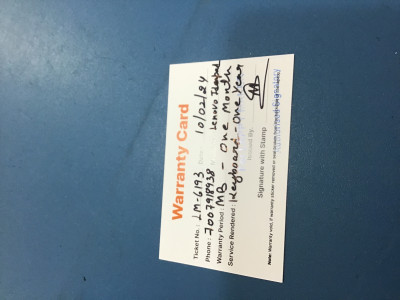 Warranty Card
Ticket No.: LM-6193 Date: 10/02/24
Phone: 7007918938 Lenovo
Warranty Period: MB - One Month
Service Rendered: Keyboard - One Year
Issued By
Signature with Stamp
Note: Warranty void, if warranty sticker removed or